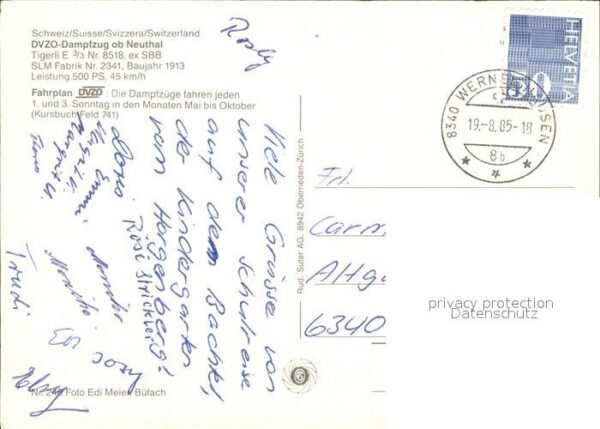 Schweiz/Suisse/Svizzera/Switzerland
DVZO-Dampfzug ob Neuthal
Tigerli E 3/3 Nr. 8518, ex SBB
SLM Fabrik Nr. 2341, Baujahr 1913
Leistung 500 PS, 45 km/h
Fahrplan DVZO: Die Dampfzüge fahren jeden
1. und 3. Sonntag in den Monaten Mai bis Oktober
(Kursbuch Feld 741)
Rosly
Viele Grüsse von
unserer Schulreise
auf dem Bachtel,
der Kindergarten
vom Horgenberg!
Rösi Strickler
Doris
Emmi
Margrit U.
Monika
Trudi
Rud. Suter AG, 8942 Oberrieden-Zürich
HELVETIA
8340 WERNETSHAUSEN
19.-8.85-18
8b
Frl.
Carm
Altg
6340
privacy protection
Datenschutz
Nr. 246 Foto Edi Meier Bülach